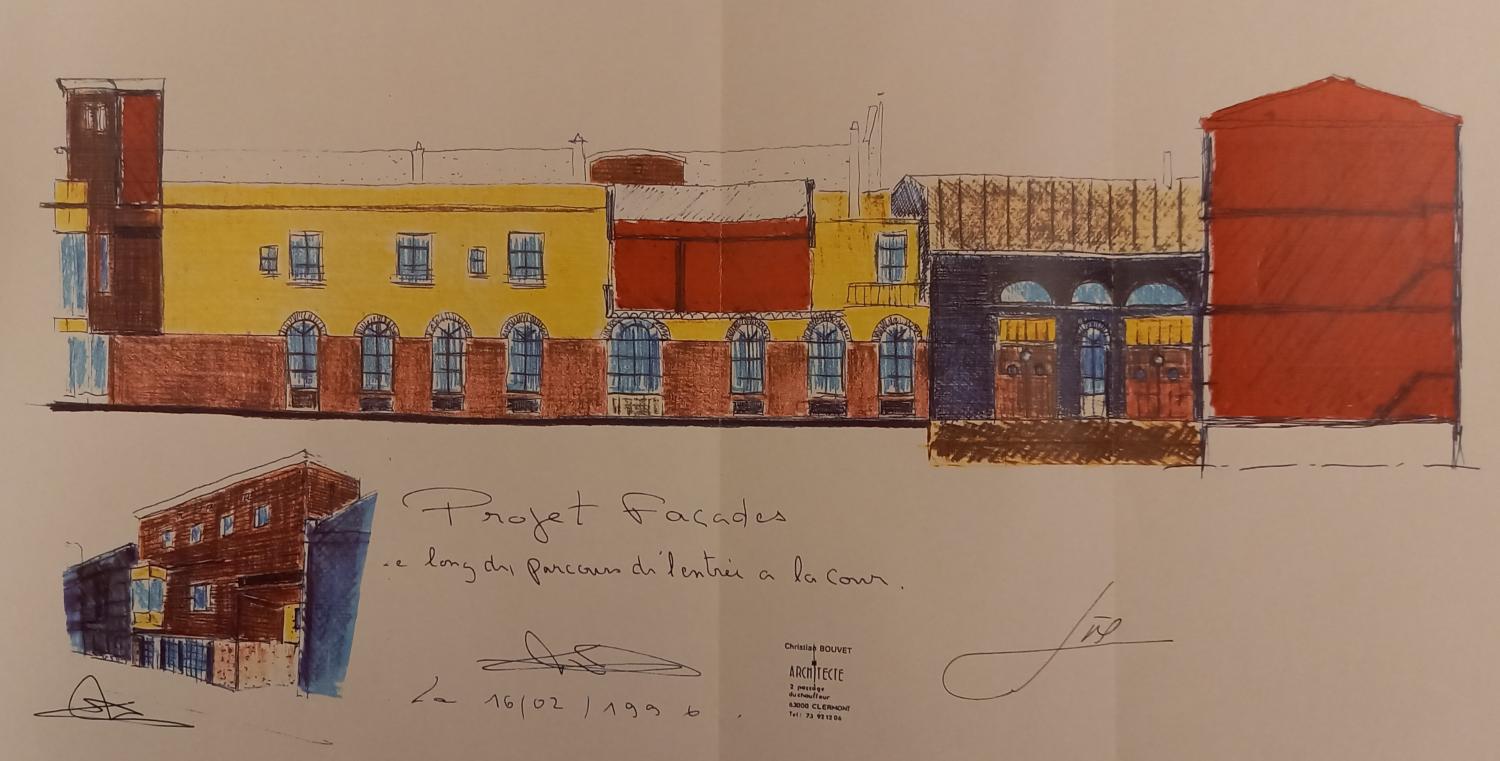 Projet Façades
e long du parcours di l'entrée a la cour.
Le 16/02/1996.
Christian BOUVET
ARCHITECTE
2 passage
du chauffour
63000 CLERMONT
Tel: 73 92 12 06